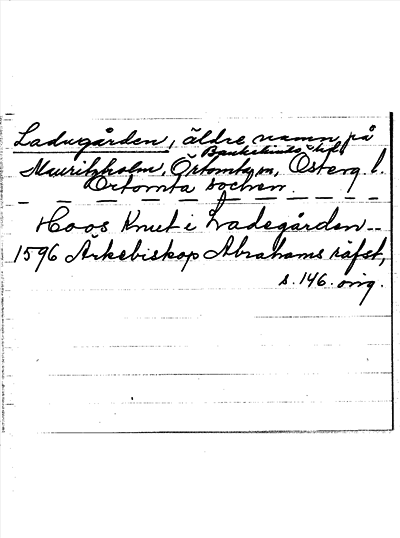 Ladugården, äldre namn på
Bankekinds hd
Mauritzholm, Örtomta sn, Österg. l.
Örtomta socken.
Hoos Knut i Ladegården --
1596 Ärkebiskop Abrahams räfst,
s. 146. orig.